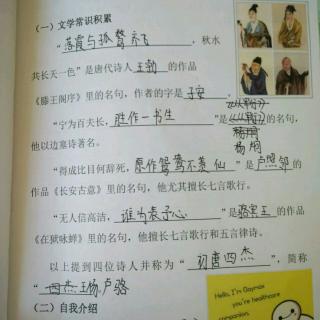 （一）文学常识积累
“落霞与孤鹜齐飞，秋水
共长天一色”是唐代诗人王勃的作品
《滕王阁序》里的名句，作者的字是子安。
“宁为百夫长，胜作一书生”是《从军行》的名句，
杨炯
杨炯
他以边塞诗著名。
“得成比目何辞死，愿作鸳鸯不羡仙”是卢照邻的
作品《长安古意》里的名句，他尤其擅长七言歌行。
“无人信高洁，谁为表予心”是骆宾王的作品
《在狱咏蝉》里的名句，他擅长七言歌行和五言律诗。
以上提到四位诗人并称为“初唐四杰”，简称
“四杰王杨卢骆
（二）自我介绍
Hello, I'm Baymax
you're healthcare
companion.